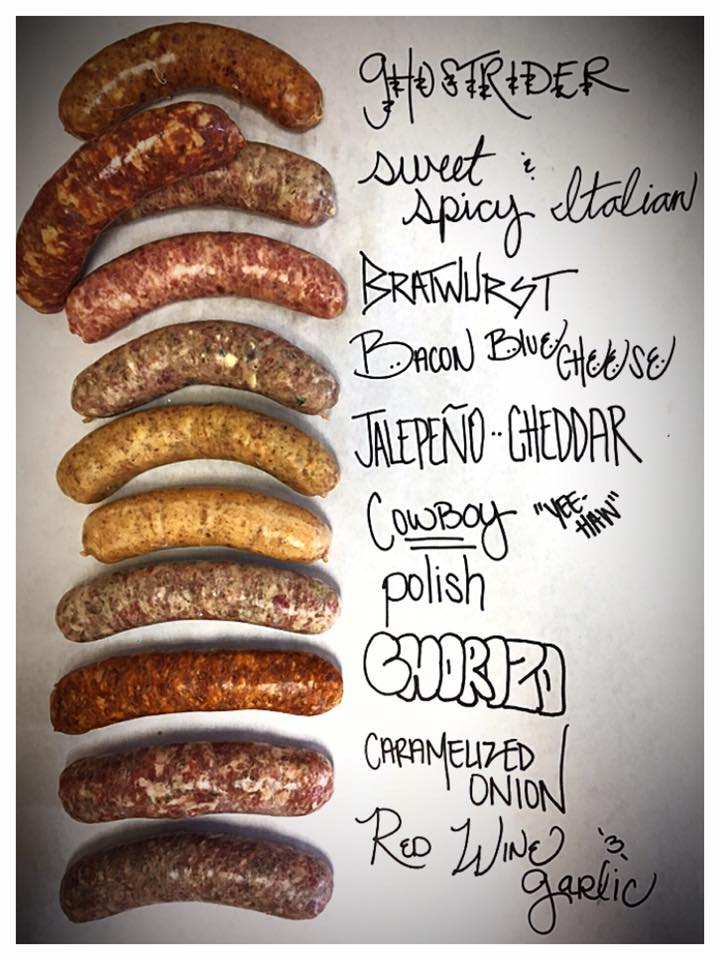 GHOSTRIDER
sweet &
spicy Italian
BRATWURST
BACON BLUE CHEESE
JALEPEÑO·CHEDDAR
COWBOY "YEE-
HAW"
polish
CHORIZO
CARAMELIZED
ONION
RED WINE &
garlic